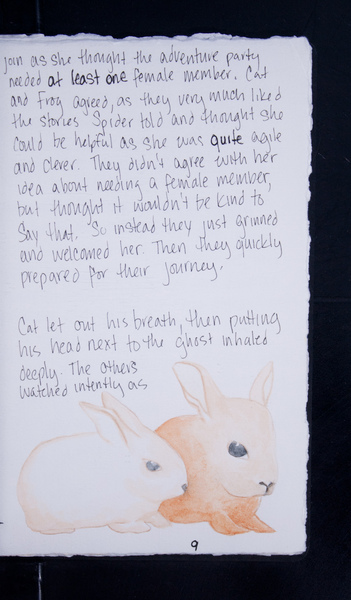 join as she thought the adventure party
needed at least one female member. Cat
and Frog agreed, as they very much liked
the stories Spider told and thought she
could be helpful as she was quite agile
and clever. They didn't agree with her
idea about needing a female member,
but thought it wouldn't be kind to
say that. So instead they just grinned
and welcomed her. Then they quickly
prepared for their journey.
Cat let out his breath, then putting
his head next to the ghost inhaled
deeply. The others
watched intently as
9